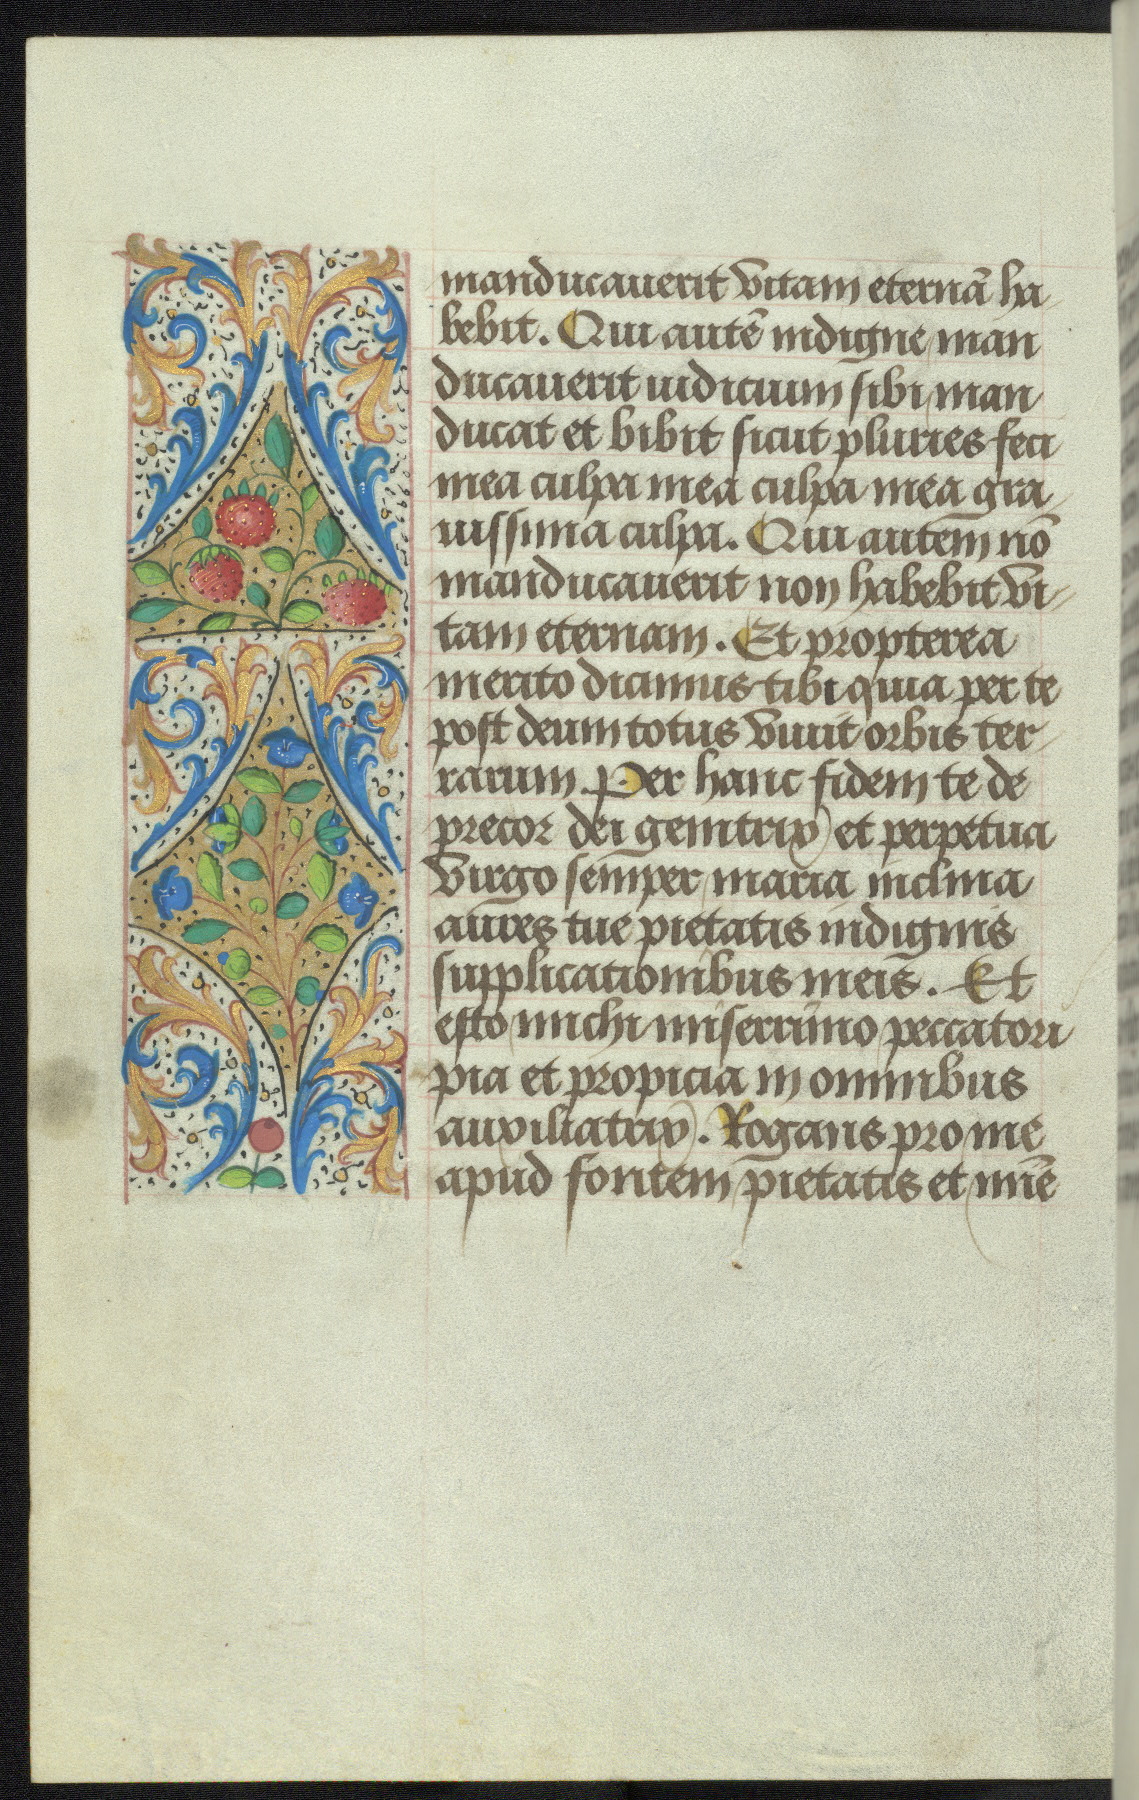 manducauerit vitam eternā ha
bebit. Qui autē indigne man
ducauerit iudicium sibi man
ducat et bibit sicut pluries feci
mea culpa mea culpa mea gra
uissima culpa. Qui autem nō
manducauerit non habebit vi-
tam eternam. Et propterea
merito dicimus tibi quia per te
post deum totus viuit orbis ter
rarum. Per hanc fidem te de
precor dei genitrix et perpetua
virgo semper maria inclina
aures tue pietatis indignis
supplicationibus meis. Et
esto michi miserrimo peccatori
pia et propicia in omnibus
auxiliatrix. Rogans pro me
apud fontem pietatis et mīe